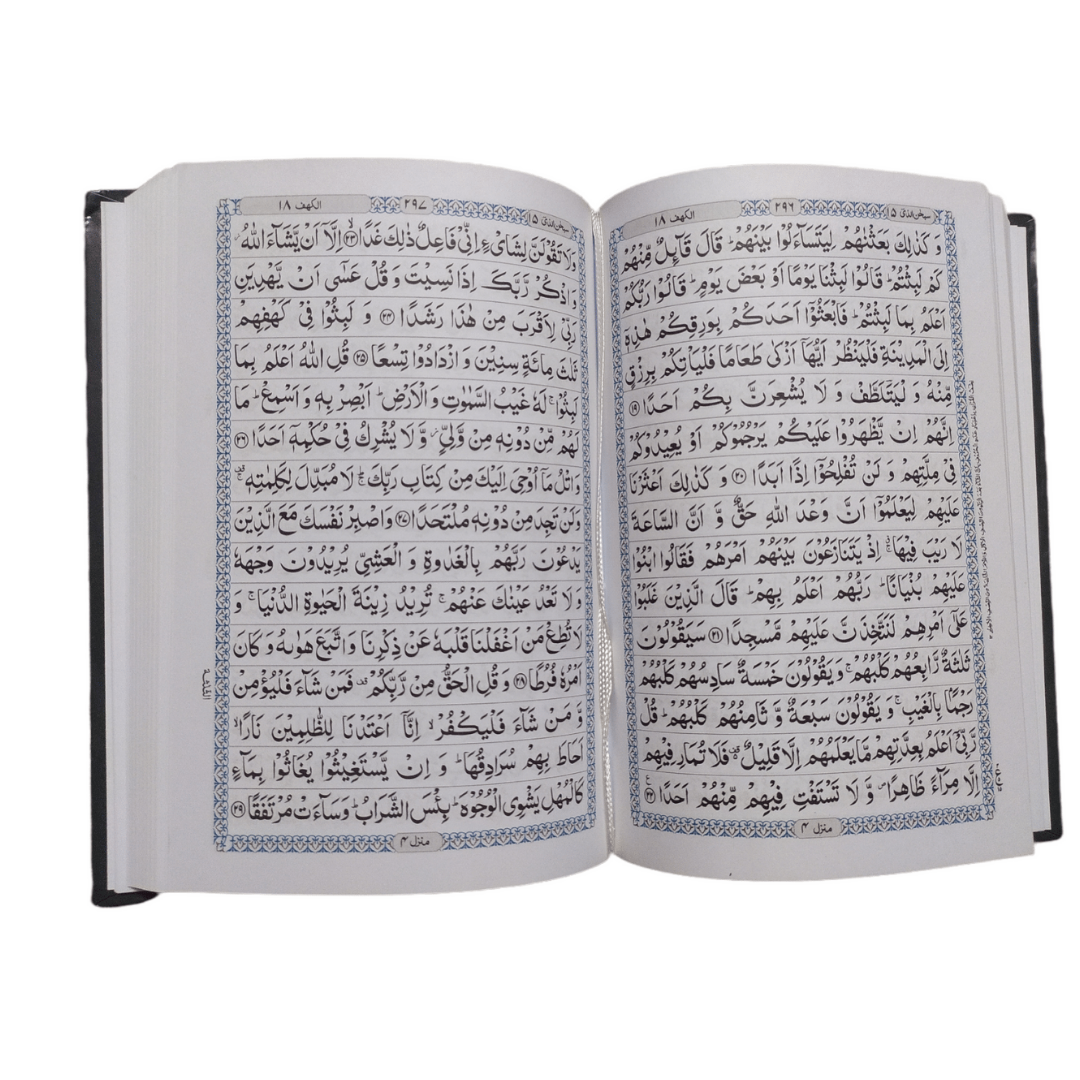 سبحٰن الذی ۱۵
۲۹۶
الكهف ۱۸
وَ كَذٰلِكَ بَعَثْنٰهُمْ لِيَتَسَآءَلُوْا بَيْنَهُمْ ؕ قَالَ قَآئِلٌ مِّنْهُمْ
كَمْ لَبِثْتُمْ ؕ قَالُوْا لَبِثْنَا يَوْمًا اَوْ بَعْضَ يَوْمٍ ؕ قَالُوْا رَبُّكُمْ
اَعْلَمُ بِمَا لَبِثْتُمْ ؕ فَابْعَثُوْۤا اَحَدَكُمْ بِوَرِقِكُمْ هٰذِهٖۤ
اِلَى الْمَدِيْنَةِ فَلْيَنْظُرْ اَيُّهَاۤ اَزْكٰى طَعَامًا فَلْيَاْتِكُمْ بِرِزْقٍ
مِّنْهُ وَ لْيَتَلَطَّفْ وَ لَا يُشْعِرَنَّ بِكُمْ اَحَدًا ۱۹
اِنَّهُمْ اِنْ يَّظْهَرُوْا عَلَيْكُمْ يَرْجُمُوْكُمْ اَوْ يُعِيْدُوْكُمْ
فِيْ مِلَّتِهِمْ وَ لَنْ تُفْلِحُوْۤا اِذًا اَبَدًا ۲۰ وَ كَذٰلِكَ اَعْثَرْنَا
عَلَيْهِمْ لِيَعْلَمُوْۤا اَنَّ وَعْدَ اللّٰهِ حَقٌّ وَّ اَنَّ السَّاعَةَ
لَا رَيْبَ فِيْهَا ۚ اِذْ يَتَنَازَعُوْنَ بَيْنَهُمْ اَمْرَهُمْ فَقَالُوا ابْنُوْا
عَلَيْهِمْ بُنْيَانًا ؕ رَبُّهُمْ اَعْلَمُ بِهِمْ ؕ قَالَ الَّذِيْنَ غَلَبُوْا
عَلٰۤى اَمْرِهِمْ لَنَتَّخِذَنَّ عَلَيْهِمْ مَّسْجِدًا ۲۱ سَيَقُوْلُوْنَ
ثَلٰثَةٌ رَّابِعُهُمْ كَلْبُهُمْ ۚ وَ يَقُوْلُوْنَ خَمْسَةٌ سَادِسُهُمْ كَلْبُهُمْ
رَجْمًۢا بِالْغَيْبِ ۚ وَ يَقُوْلُوْنَ سَبْعَةٌ وَّ ثَامِنُهُمْ كَلْبُهُمْ ؕ قُلْ
رَّبِّيْۤ اَعْلَمُ بِعِدَّتِهِمْ مَّا يَعْلَمُهُمْ اِلَّا قَلِيْلٌ ۫ فَلَا تُمَارِ فِيْهِمْ
اِلَّا مِرَآءً ظَاهِرًا ۪ وَّ لَا تَسْتَفْتِ فِيْهِمْ مِّنْهُمْ اَحَدًا ۲۲
منزل ۴
سبحٰن الذی ۱۵
۲۹۷
الكهف ۱۸
وَلَا تَقُوْلَنَّ لِشَايْءٍ اِنِّيْ فَاعِلٌ ذٰلِكَ غَدًا ۲۳ اِلَّاۤ اَنْ يَّشَآءَ اللّٰهُ
وَ اذْكُرْ رَّبَّكَ اِذَا نَسِيْتَ وَ قُلْ عَسٰۤى اَنْ يَّهْدِيَنِ
رَبِّيْ لِاَقْرَبَ مِنْ هٰذَا رَشَدًا ۲۴ وَ لَبِثُوْا فِيْ كَهْفِهِمْ
ثَلٰثَ مِائَةٍ سِنِيْنَ وَ ازْدَادُوْا تِسْعًا ۲۵ قُلِ اللّٰهُ اَعْلَمُ بِمَا
لَبِثُوْا ۚ لَهٗ غَيْبُ السَّمٰوٰتِ وَ الْاَرْضِ ؕ اَبْصِرْ بِهٖ وَ اَسْمِعْ ؕ مَا
لَهُمْ مِّنْ دُوْنِهٖ مِنْ وَّلِيٍّ ؗ وَّ لَا يُشْرِكُ فِيْ حُكْمِهٖۤ اَحَدًا ۲۶
وَ اتْلُ مَاۤ اُوْحِيَ اِلَيْكَ مِنْ كِتَابِ رَبِّكَ ۚ لَا مُبَدِّلَ لِكَلِمٰتِهٖ ۚ
وَلَنْ تَجِدَ مِنْ دُوْنِهٖ مُلْتَحَدًا ۲۷ وَاصْبِرْ نَفْسَكَ مَعَ الَّذِيْنَ
يَدْعُوْنَ رَبَّهُمْ بِالْغَدٰوةِ وَ الْعَشِيِّ يُرِيْدُوْنَ وَجْهَهٗ
وَ لَا تَعْدُ عَيْنٰكَ عَنْهُمْ ۚ تُرِيْدُ زِيْنَةَ الْحَيٰوةِ الدُّنْيَا ۚ وَ
لَا تُطِعْ مَنْ اَغْفَلْنَا قَلْبَهٗ عَنْ ذِكْرِنَا وَ اتَّبَعَ هَوٰىهُ وَ كَانَ
اَمْرُهٗ فُرُطًا ۲۸ وَ قُلِ الْحَقُّ مِنْ رَّبِّكُمْ ۫ فَمَنْ شَآءَ فَلْيُؤْمِنْ
وَّ مَنْ شَآءَ فَلْيَكْفُرْ ۙ اِنَّاۤ اَعْتَدْنَا لِلظّٰلِمِيْنَ نَارًا ۙ
اَحَاطَ بِهِمْ سُرَادِقُهَا ؕ وَ اِنْ يَّسْتَغِيْثُوْا يُغَاثُوْا بِمَآءٍ
كَالْمُهْلِ يَشْوِي الْوُجُوْهَ ؕ بِئْسَ الشَّرَابُ ؕ وَ سَآءَتْ مُرْتَفَقًا ۲۹
منزل ۴